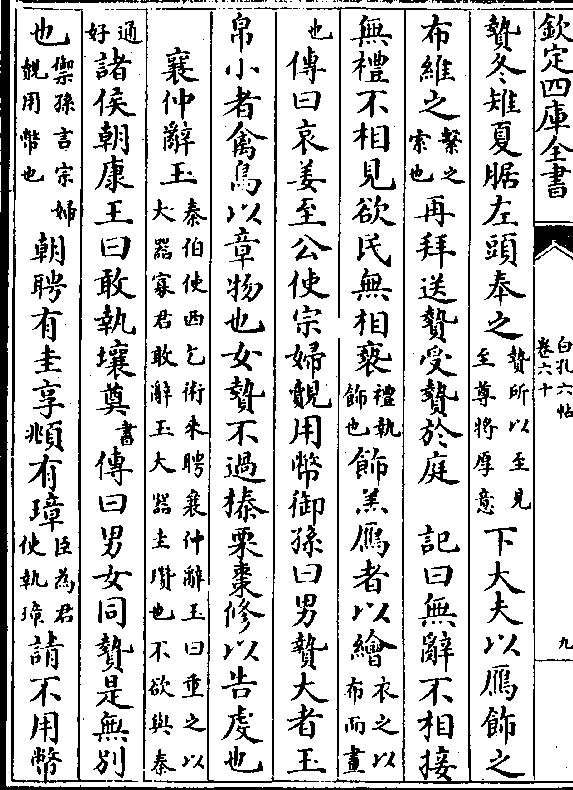 欽定四庫全書
白孔六帖
卷六十
九
贄冬雉夏腒左頭奉之贄所以至見至尊將厚意下大夫以鴈飾之
布維之繫之索也再拜送贄受贄於庭　記曰無辭不相接
無禮不相見欲民無相褻禮執飾也飾羔鴈者以繪衣之以布而畫
也傳曰哀姜至公使宗婦覿用幣御孫曰男贄大者玉
帛小者禽鳥以章物也女贄不過榛栗棗修以告虔也
襄仲辭玉秦伯使西乞術來聘襄仲辭玉曰重之以大器寡君敢辭玉大器圭瓚也不欲與秦
通好諸侯朝康王曰敢執壤奠書傳曰男女同贄是無別
也禦孫言宗婦覿用幣也朝聘有圭享覜有璋臣為君使執璋請不用幣